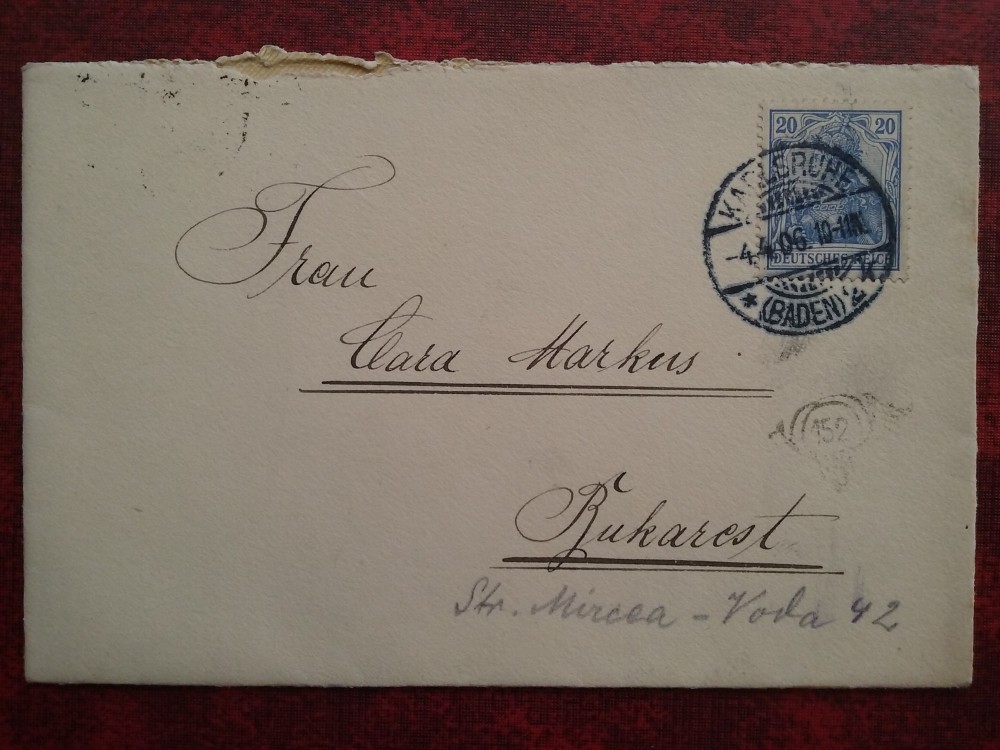 20 20
KARLSRUHE
-4.4.06. 10-11N.
DEUTSCHES REICH
* (BADEN) 2
Frau
Clara Markus
152
Bukarest
Str. Mircea - Voda 42